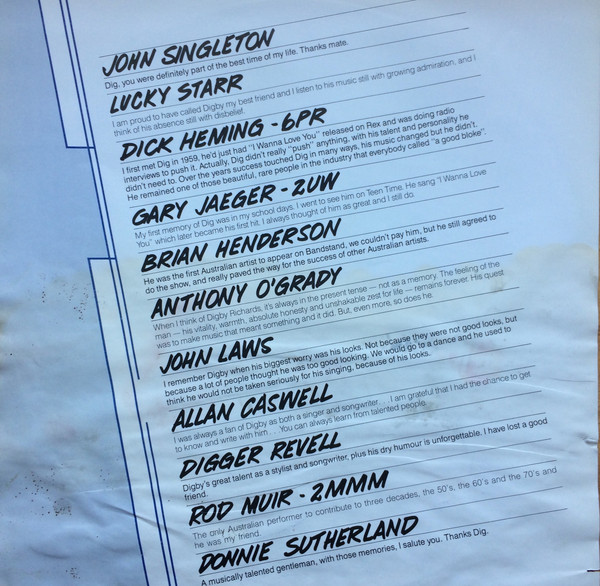 JOHN SINGLETON
Dig, you were definitely part of the best time of my life. Thanks mate.
LUCKY STARR
I am proud to have called Digby my best friend and I listen to his music still with growing admiration, and I
think of his absence still with disbelief.
DICK HEMING - 6PR
I first met Dig in 1959, he'd just had "I Wanna Love You" released on Rex and was doing radio
interviews to push it. Actually, Dig didn't really "push" anything, with his talent and personality he
didn't need to. Over the years success touched Dig in many ways, his music changed but he didn't.
He remained one of those beautiful, rare people in the industry that everybody called "a good bloke".
GARY JAEGER - 2UW
My first memory of Dig was in my school days. I went to see him on Teen Time. He sang "I Wanna Love
You" which later became his first hit. I always thought of him as great and I still do.
BRIAN HENDERSON
He was the first Australian artist to appear on Bandstand, we couldn't pay him, but he still agreed to
do the show, and really paved the way for the success of other Australian artists.
ANTHONY O'GRADY
When I think of Digby Richards, it's always in the present tense — not as a memory. The feeling of the
man — his vitality, warmth, absolute honesty and unshakable zest for life — remains forever. His quest
was to make music that meant something and it did. But, even more, so does he.
JOHN LAWS
I remember Digby when his biggest worry was his looks. Not because they were not good looks, but
because a lot of people thought he was too good looking. We would go to a dance and he used to
think he would not be taken seriously for his singing, because of his looks.
ALLAN CASWELL
I was always a fan of Digby as both a singer and songwriter. . . I am grateful that I had the chance to get
to know and write with him. . . You can always learn from talented people.
DIGGER REVELL
Digby's great talent as a stylist and songwriter, plus his dry humour is unforgettable. I have lost a good
friend.
ROD MUIR - 2MMM
The only Australian performer to contribute to three decades, the 50's, the 60's and the 70's and
he was my friend.
DONNIE SUTHERLAND
A musically talented gentleman, with those memories, I salute you. Thanks Dig.